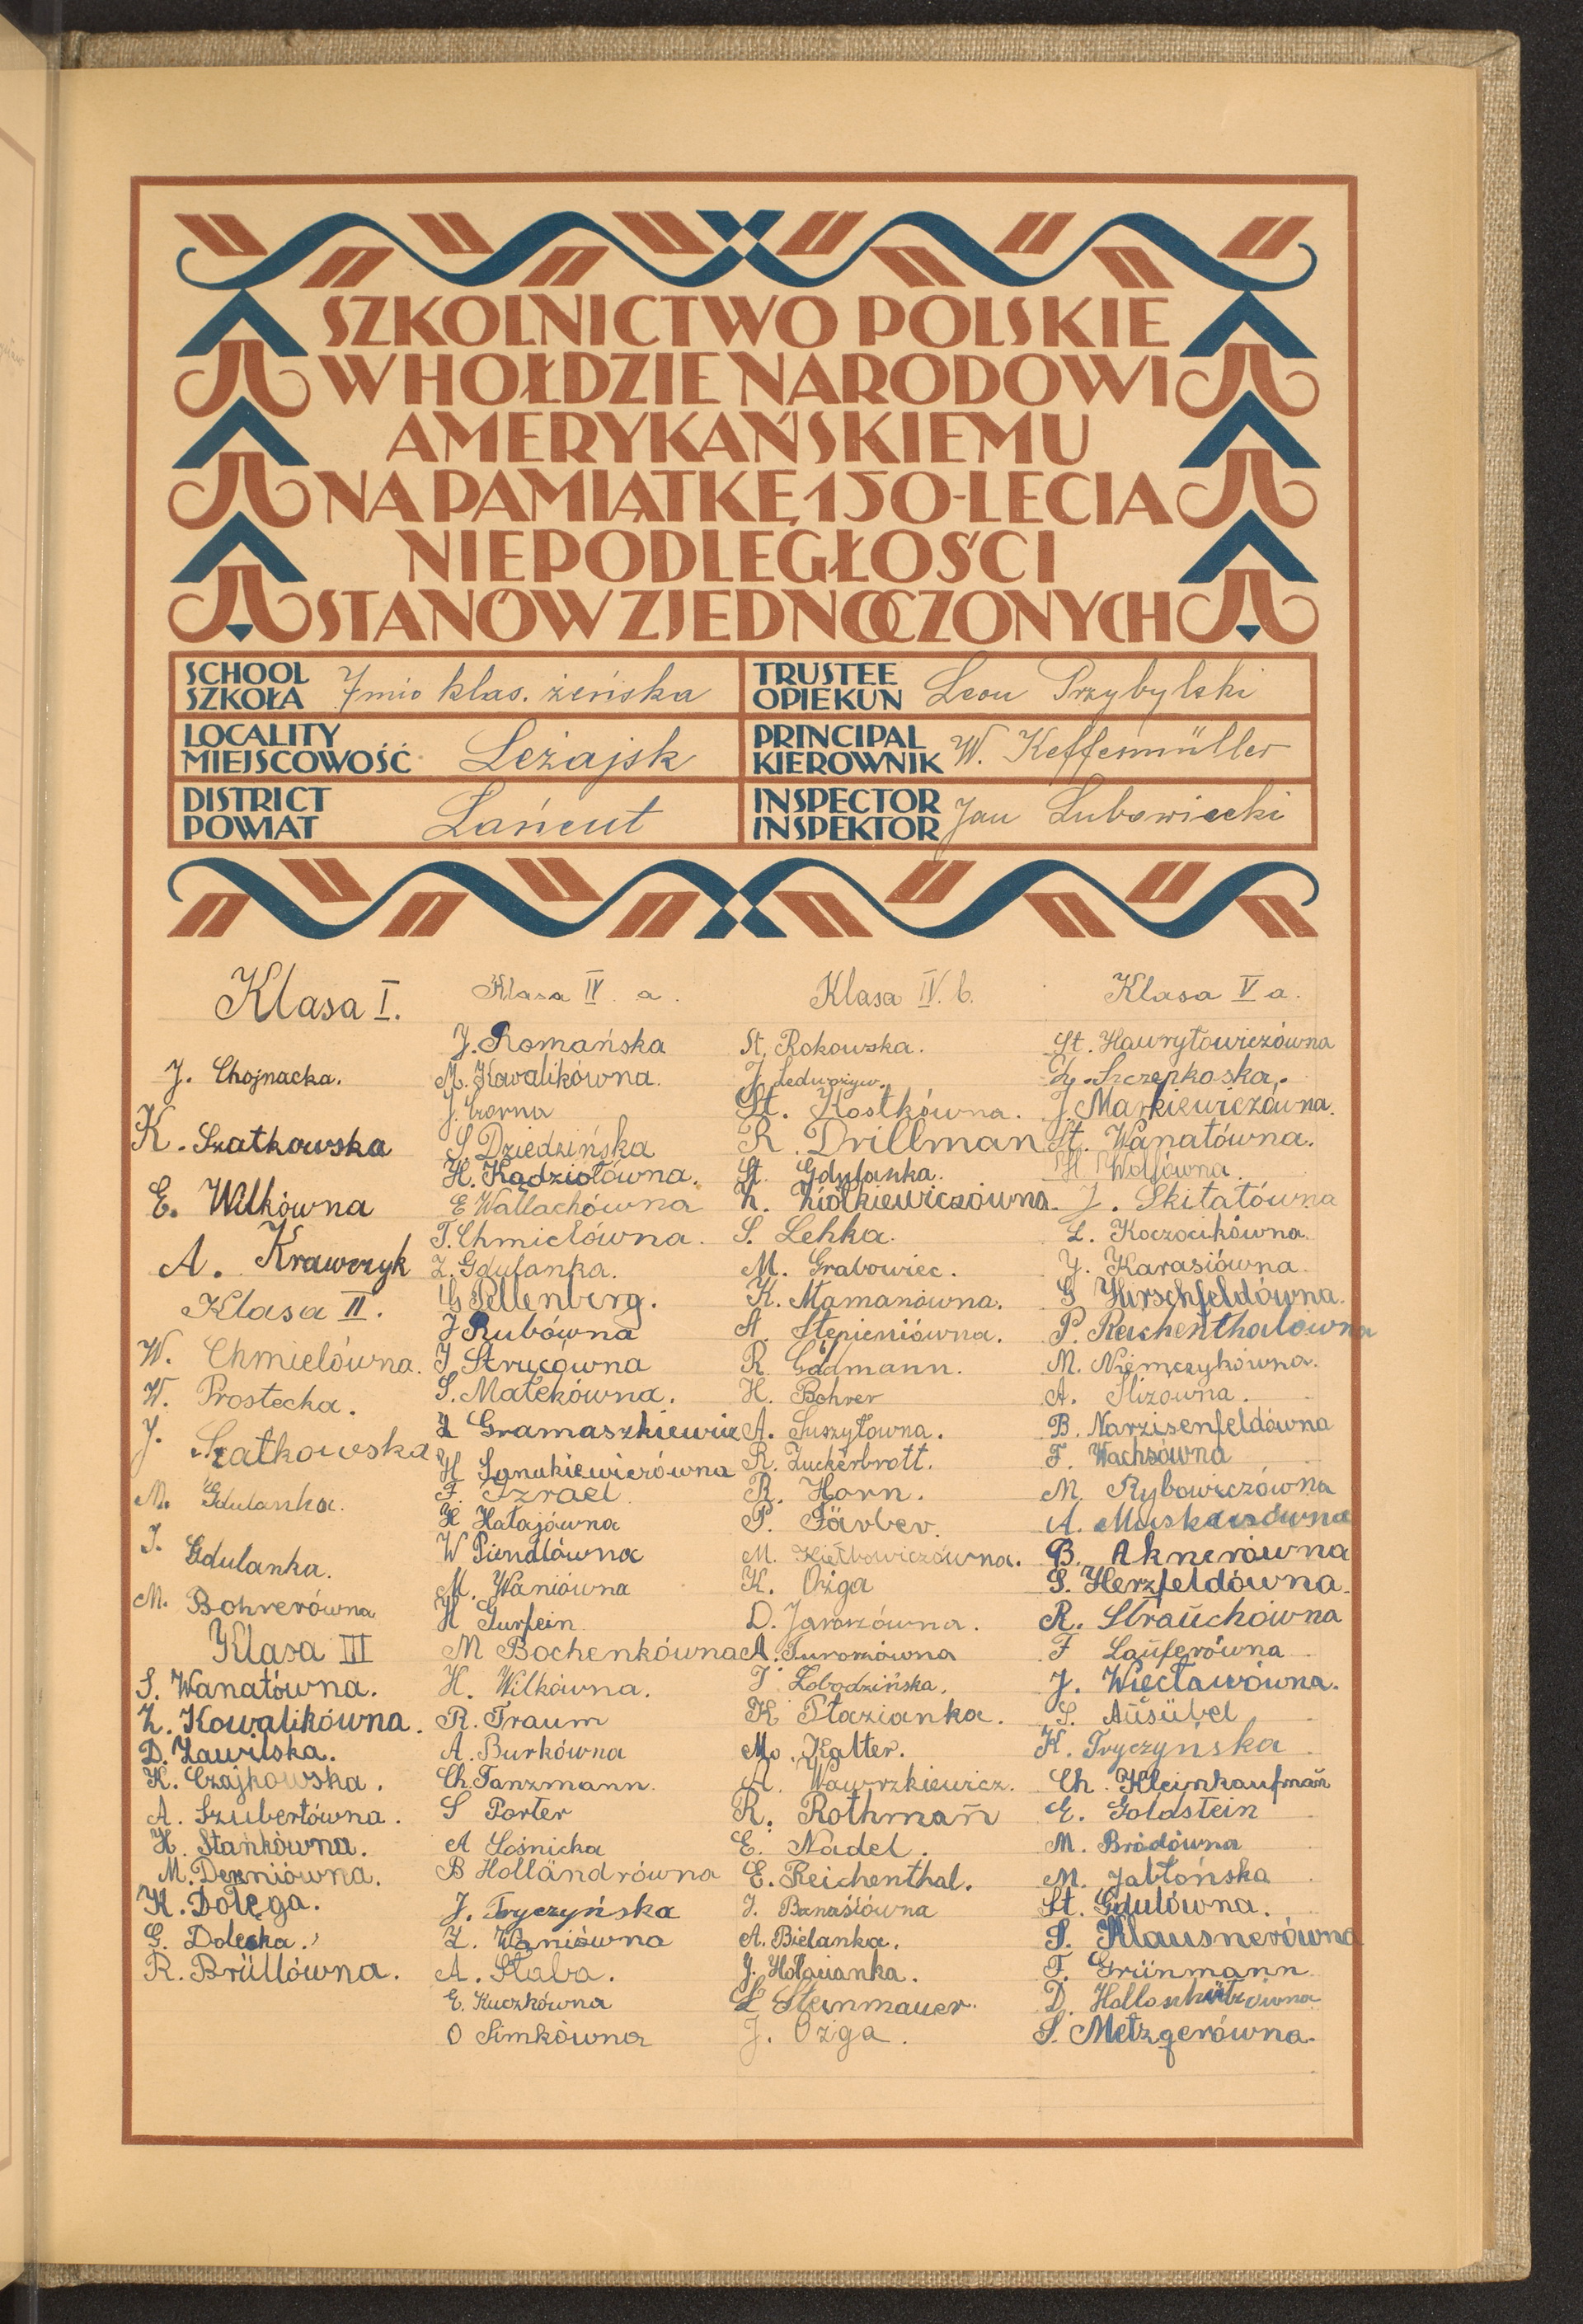 SZKOLNICTWO POLSKIE
W HOŁDZIE NARODOWI
AMERYKAŃSKIEMU
NA PAMIĄTKĘ 150-LECIA
NIEPODLEGŁOŚCI
STANÓW ZJEDNOCZONYCH
SCHOOL
SZKOŁA
7mio klas. żeńska
TRUSTEE
OPIEKUN
Leon Przybylski
LOCALITY
MIEJSCOWOŚĆ
Leżajsk
PRINCIPAL
KIEROWNIK
W. Keffermüller
DISTRICT
POWIAT
Łańcut
INSPECTOR
INSPEKTOR
Jan Lubowiecki
Klasa I.
J. Chojnacka.
K. Szatkowska
E. Wilkówna
A. Krawczyk
Klasa II.
W. Chmielówna.
W. Prostecka.
J. Szatkowska
M. Gdulanka.
J. Gdulanka.
M. Bohrerówna
Klasa III
S. Wanatówna.
Z. Kowalikówna.
D. Zawilska.
K. Czajkowska.
A. Szubertówna.
H. Stankówna.
M. Derniówna.
K. Dołęga.
G. Dolecka.
R. Brüllówna.
Klasa IV. a.
J. Romańska
M. Kowalikówna.
J. Czorna
S. Dziedzińska
H. Kądziołówna.
E Wallachówna
T. Chmielówna.
Z. Gdulanka.
G Pellenberg.
J Rubówna
J Strucówna
S. Małekówna.
Z Gramaszkiewicz
H
F. Izrael
H Hałajówna
W Piendlówna
M. Waniówna
H Gurfein
M Bochenkówna
H. Wilkówna.
R. Traum
A. Burkówna
Ch. Tanzmann.
S Porter
A Łośnicka
B Holländrówna
J. Tryczyńska
Z. Waniówna
A. Słaba.
E. Kuczkówna
O Simkówna
Klasa IV. b.
St. Rokowska.
J.
St. Kostkówna.
R. Drillman
St. Gdulanka.
Z. Ziółkiewiczówna.
S. Lehka.
M. Grabowiec.
K. Mamanówna.
A. Stępieniówna.
R. Goldmann.
H. Bohrer
A. Suszyłowna.
R. Zuckerbrott.
R. Horn.
P. Färber.
M. Kiełbowiczówna.
K. Ożga
D. Jaroszówna.
A. Turosiówna
T. Łobodzińska.
K Stazianka.
M. Kalter.
A. Wawrzkiewicz.
R. Rothman̄
E. Nadel.
E. Reichenthal.
J. Banasiówna
A. Bielanka.
J. Hołacianka.
L Steinmauer.
J. Ożga.
Klasa V a.
St. Hawryłowiczówna
J. Markiewiczówna.
St. Wanatówna.
H Wolfówna.
J. Skitałówna
L. Koczocikówna.
J. Karasiówna.
G Hirschfeldówna.
P. Reichenthalówna
M. Niemczykówna.
A. Ślizówna.
B. Narzisenfeldówna
F. Wachsówna
M. Rybowiczówna
A.
B. Aknerówna
S. Herzfeldówna.
R. Straŭchówna
F Laŭferówna
J. Więcławówna.
S. Aŭsübel
K. Tryczyńska
Ch. Kleinkaufman̄
E. Goldstein
M. Bródówna
M. Jabłońska
St. Gdulówna.
S. Klausnerówna
F. Grünmann
D.
S. Metzgerówna.